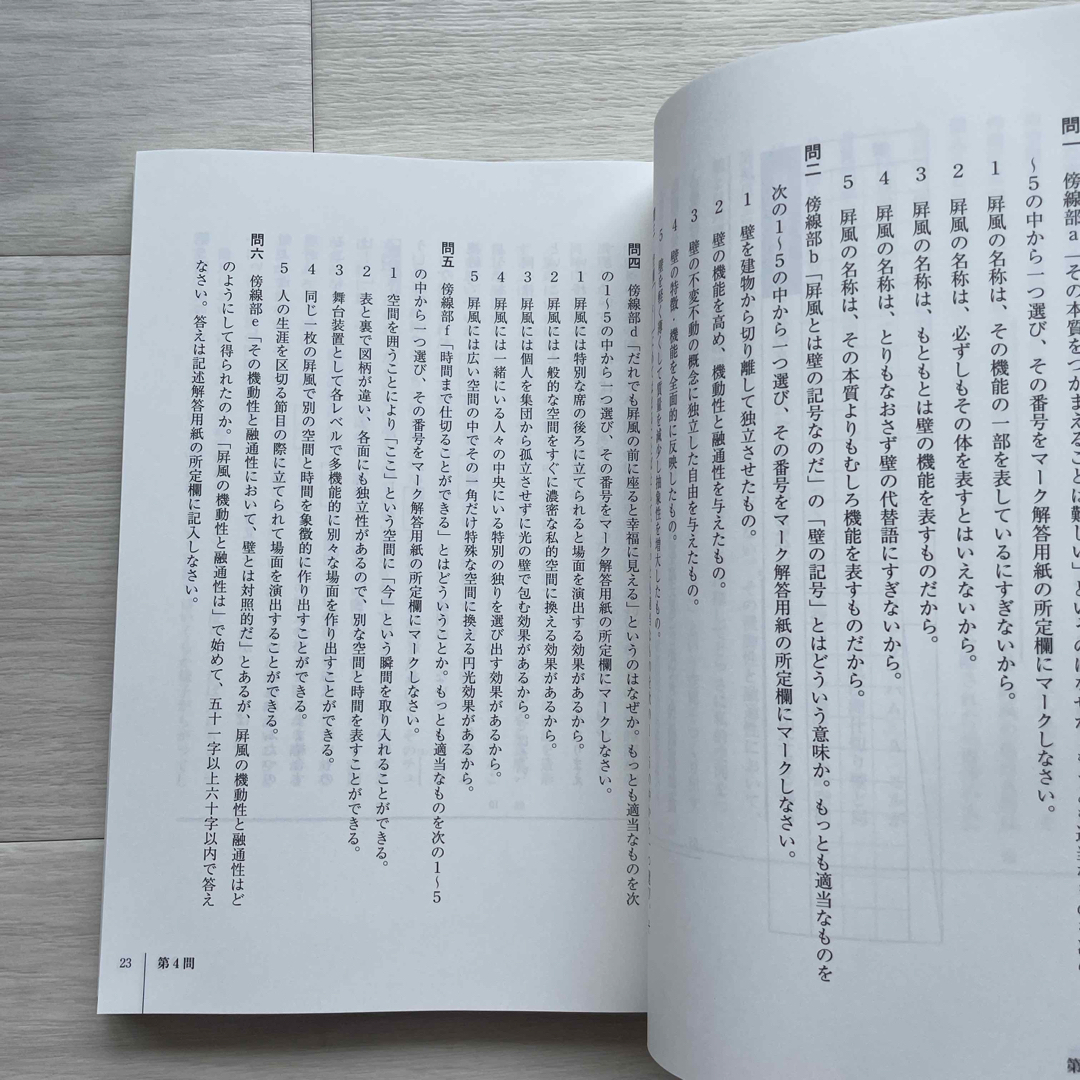 問一 傍線部a「その本質をつかまえることは難しい」というのはなぜか。
〜5の中から一つ選び、その番号をマーク解答用紙の所定欄にマークしなさい。
1 屛風の名称は、その機能の一部を表しているにすぎないから。
2 屛風の名称は、必ずしもその体を表すとはいえないから。
3 屛風の名称は、もともとは壁の機能を表すものだから。
4 屛風の名称は、とりもなおさず壁の代替語にすぎないから。
5 屛風の名称は、その本質よりもむしろ機能を表すものだから。
問二 傍線部b「屛風とは壁の記号なのだ」の「壁の記号」とはどういう意味か。もっとも適当なものを
次の1〜5の中から一つ選び、その番号をマーク解答用紙の所定欄にマークしなさい。
1 壁を建物から切り離して独立させたもの。
2 壁の機能を高め、機動性と融通性を与えたもの。
3 壁の不変不動の概念に独立した自由を与えたもの。
4 壁の特徴・機能を全面的に反映したもの。
5 壁を軽く薄くして質量を減少し抽象性を増大したもの。
問四 傍線部d「だれでも屛風の前に座ると幸福に見える」というのはなぜか。もっとも適当なものを次
の1〜5の中から一つ選び、その番号をマーク解答用紙の所定欄にマークしなさい。
1 屛風には特別な席の後ろに立てられると場面を演出する効果があるから。
2 屛風には一般的な空間をすぐに濃密な私的空間に換える効果があるから。
3 屛風には個人を集団から孤立させずに光の壁で包む効果があるから。
4 屛風には一緒にいる人々の中央にいる特別の独りを選び出す効果があるから。
5 屛風には広い空間の中でその一角だけ特殊な空間に換える円光効果があるから。
問五 傍線部f「時間まで仕切ることができる」とはどういうことか。もっとも適当なものを次の1〜5
の中から一つ選び、その番号をマーク解答用紙の所定欄にマークしなさい。
1 空間を囲うことにより「ここ」という空間に「今」という瞬間を取り入れることができる。
2 表と裏で図柄が違い、各面にも独立性があるので、別な空間と時間を表すことができる。
3 舞台装置として各レベルで多機能的に別々な場面を作り出すことができる。
4 同じ一枚の屛風で別の空間と時間を象徴的に作り出すことができる。
5 人の生涯を区切る節目の際に立てられて場面を演出することができる。
問六 傍線部e「その機動性と融通性において、壁とは対照的だ」とあるが、屛風の機動性と融通性はど
のようにして得られたのか。「屛風の機動性と融通性は」で始めて、五十一字以上六十字以内で答え
なさい。答えは記述解答用紙の所定欄に記入しなさい。
23 第4問
第